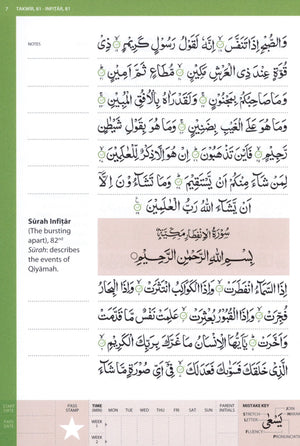 7 TAKWĪR, 81 - INFIṬĀR, 81
NOTES
وَالصُّبْحِ إِذَا تَنَفَّسَ ۝ إِنَّهُ لَقَوْلُ رَسُولٍ كَرِيمٍ ۝ ذِي
قُوَّةٍ عِندَ ذِي الْعَرْشِ مَكِينٍ ۝ مُّطَاعٍ ثَمَّ أَمِينٍ ۝
وَمَا صَاحِبُكُم بِمَجْنُونٍ ۝ وَلَقَدْ رَآهُ بِالْأُفُقِ الْمُبِينِ ۝
وَمَا هُوَ عَلَى الْغَيْبِ بِضَنِينٍ ۝ وَمَا هُوَ بِقَوْلِ شَيْطَٰنٍ
رَّجِيمٍ ۝ فَأَيْنَ تَذْهَبُونَ ۝ إِنْ هُوَ إِلَّا ذِكْرٌ لِّلْعَٰلَمِينَ ۝
لِمَن شَاءَ مِنكُمْ أَن يَسْتَقِيمَ ۝ وَمَا تَشَاءُونَ إِلَّا
أَن يَشَاءَ اللَّهُ رَبُّ الْعَٰلَمِينَ ۝
Sūrah Infiṭār
(The bursting
apart), 82nd
Sūrah: describes
the events of
Qiyāmah.
سُورَةُ الْإِنْفِطَارِ مَكِّيَّةٌ
بِسْمِ اللَّهِ الرَّحْمَٰنِ الرَّحِيمِ
إِذَا السَّمَاءُ انفَطَرَتْ ۝ وَإِذَا الْكَوَاكِبُ انتَثَرَتْ ۝ وَإِذَا الْبِحَارُ
فُجِّرَتْ ۝ وَإِذَا الْقُبُورُ بُعْثِرَتْ ۝ عَلِمَتْ نَفْسٌ مَّا قَدَّمَتْ
وَأَخَّرَتْ ۝ يَٰأَيُّهَا الْإِنسَانُ مَا غَرَّكَ بِرَبِّكَ الْكَرِيمِ ۝
الَّذِي خَلَقَكَ فَسَوَّىٰكَ فَعَدَلَكَ ۝ فِي أَيِّ صُورَةٍ مَّا شَاءَ
START DATE
PASS DATE
PASS STAMP
TIME (MIN) MON TUE WED THU FRI SAT SUN PARENT INITIALS
WEEK 1
WEEK 2
MISTAKE KEY
STRETCH
LETTER
FLUENCY
يَسْعَىٰ